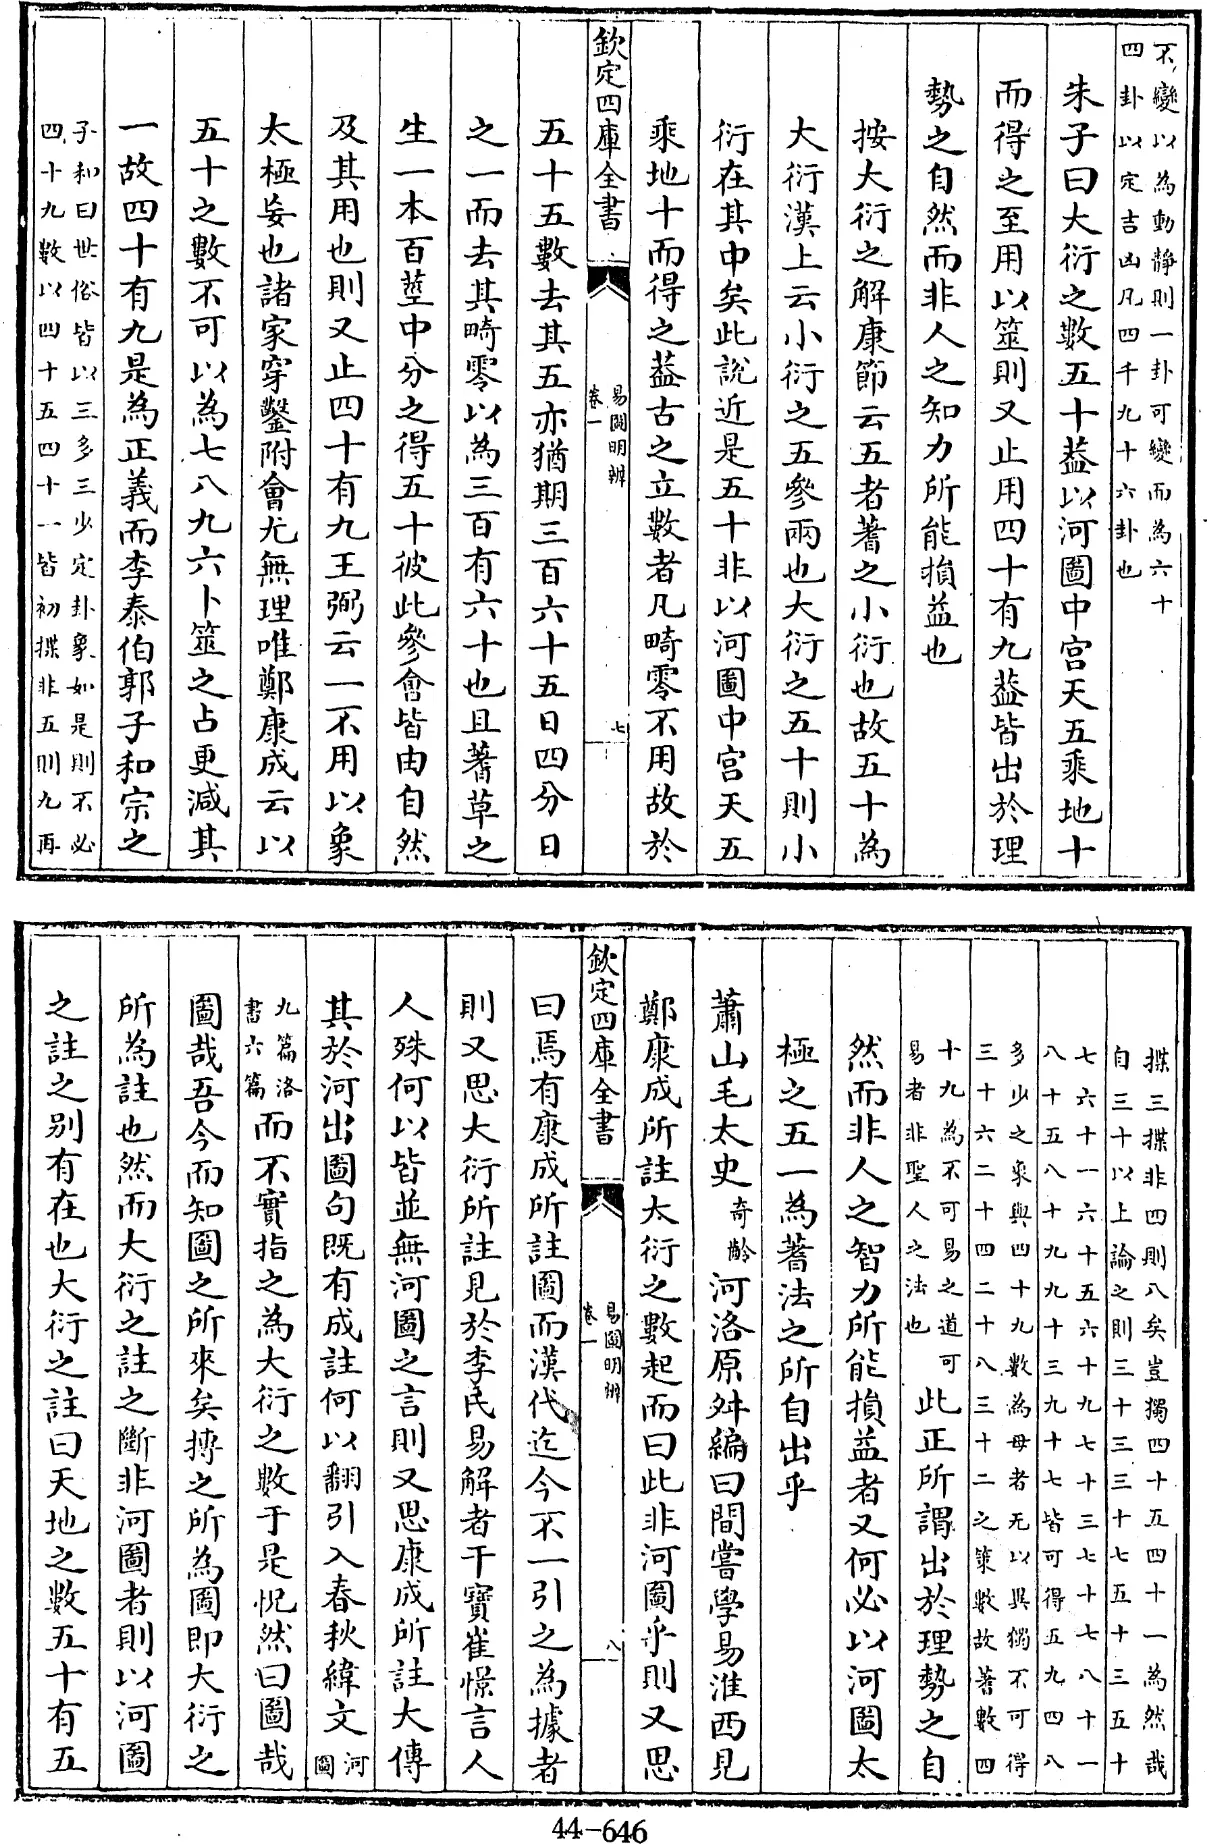 不變以為動靜則一卦可變而為六十
四卦以定吉凶凡四千九十六卦也
朱子曰大衍之數五十葢以河圖中宮天五乘地十
而得之至用以筮則又止用四十有九葢皆出於理
勢之自然而非人之知力所能損益也
按大衍之解康節云五者蓍之小衍也故五十為
大衍漢上云小衍之五參兩也大衍之五十則小
衍在其中矣此說近是五十非以河圖中宮天五
乘地十而得之葢古之立數者凡畸零不用故於
欽定四庫全書
易圖明辨
卷一
七
五十五數去其五亦猶期三百六十五日四分日
之一而去其畸零以為三百有六十也且蓍草之
生一本百莖中分之得五十彼此參會皆由自然
及其用也則又止四十有九王弼云一不用以象
太極妄也諸家穿鑿附會尤無理唯鄭康成云以
五十之數不可以為七八九六卜筮之占更減其
一故四十有九是為正義而李泰伯郭子和宗之
子和曰世俗皆以三多三少定卦象如是則不必
四十九數以四十五四十一皆初揲非五則九再
揲三揲非四則八矣豈獨四十五四十一為然哉
自三十以上論之則三十三三十七五十三五十
七六十一六十五六十九七十三七十七八十一
八十五八十九九十三九十七皆可得五九四八
多少之象與四十九數為母者无以異獨不可得
三十六二十四二十八三十二之策數故蓍數四
十九為不可易之道可
易者非聖人之法也
此正所謂出於理勢之自
然而非人之智力所能損益者又何必以河圖太
極之五一為蓍法之所自出乎
蕭山毛太史奇齡河洛原舛編曰間嘗學易淮西見
鄭康成所註太衍之數起而曰此非河圖乎則又思
欽定四庫全書
易圖明辨
卷一
八
曰焉有康成所註圖而漢代迄今不一引之為據者
則又思大衍所註見於李氏易解者干寶崔憬言人
人殊何以皆並無河圖之言則又思康成所註大傳
其於河出圖句既有成註何以翻引入春秋緯文河圖
九篇洛
書六篇
而不實指之為大衍之數于是怳然曰圖哉
圖哉吾今而知圖之所來矣摶之所為圖即大衍之
所為註也然而大衍之註之斷非河圖者則以河圖
之註之别有在也大衍之註曰天地之數五十有五
44-646